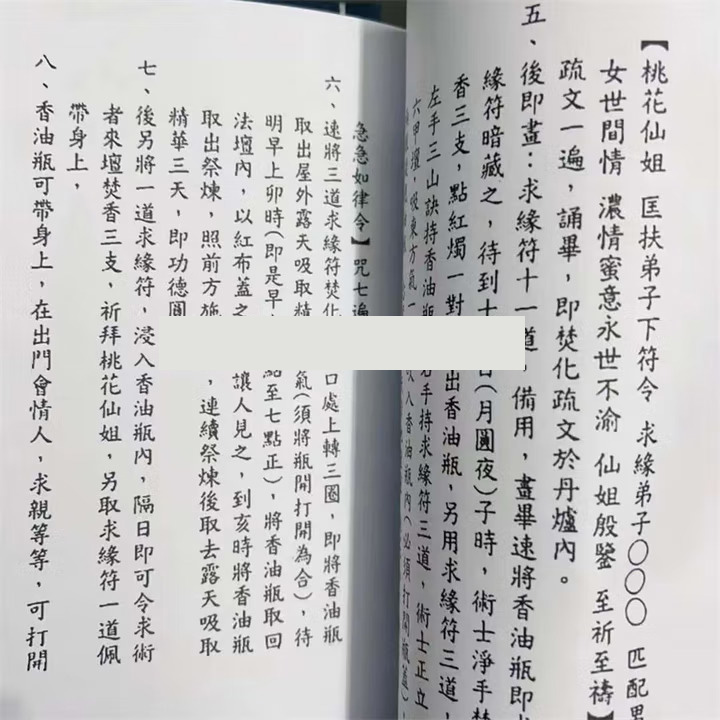 【桃花仙姐 匡扶弟子下符令 求緣弟子○○○ 匹配男
女世間情 濃情蜜意永世不渝 仙姐殷鑒 至祈至禱】
疏文一遍，誦畢，即焚化疏文於丹爐內。
五、後即畫：求緣符十一道，備用，畫畢速將香油瓶即求
緣符暗藏之，待到十 日(月圓夜)子時，術士淨手焚
香三支，點紅燭一對 出香油瓶，另用求緣符三道，
左手三山訣持香油瓶 右手持求緣符三道，術士正立
六甲壇，吸東方氣一 吹入香油瓶內(必須打開瓶蓋)，
急急如律令】咒七遍
六、速將三道求緣符焚化 口處上轉三圈，即將香油瓶
取出屋外露天吸取精 氣(須將瓶開打開為合)，待
明早上卯時(即是早 點至七點正)，將香油瓶取回
法壇內，以紅布蓋之 讓人見之，到亥時將香油瓶
取出祭煉，照前方施 ，連續祭煉後取去露天吸取
精華三天，即功德圓
七、後另將一道求緣符，浸入香油瓶內，隔日即可令求術
者來壇焚香三支，祈拜桃花仙姐，另取求緣符一道佩
帶身上，
八、香油瓶可帶身上，在出門會情人，求親等等，可打開